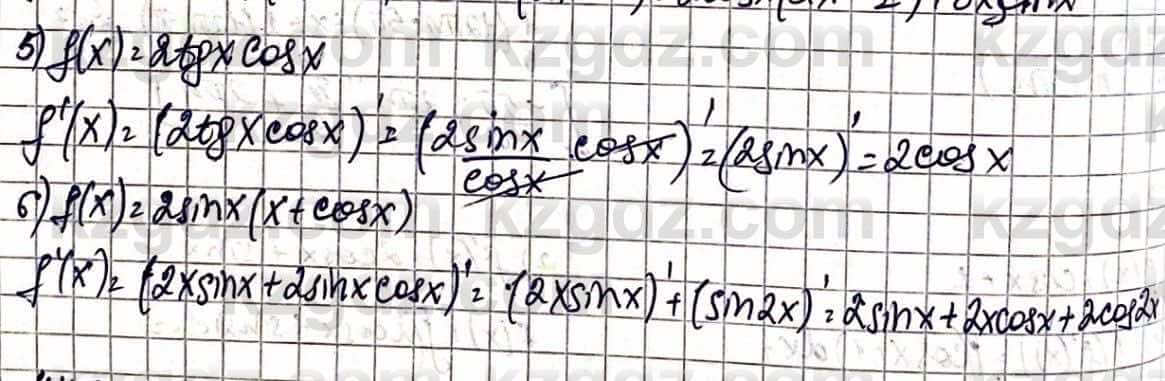 5) f(x)=2tgx cosx
f'(x)= (2tgx cosx)' = (2 sinx/cosx cosx)' = (2sinx)' = 2cosx
6) f(x)=2sinx(x+cosx)
f'(x)= (2xsinx+2sinxcosx)' = (2xsinx)' + (sin2x)' = 2sinx+2xcosx+2cos2x